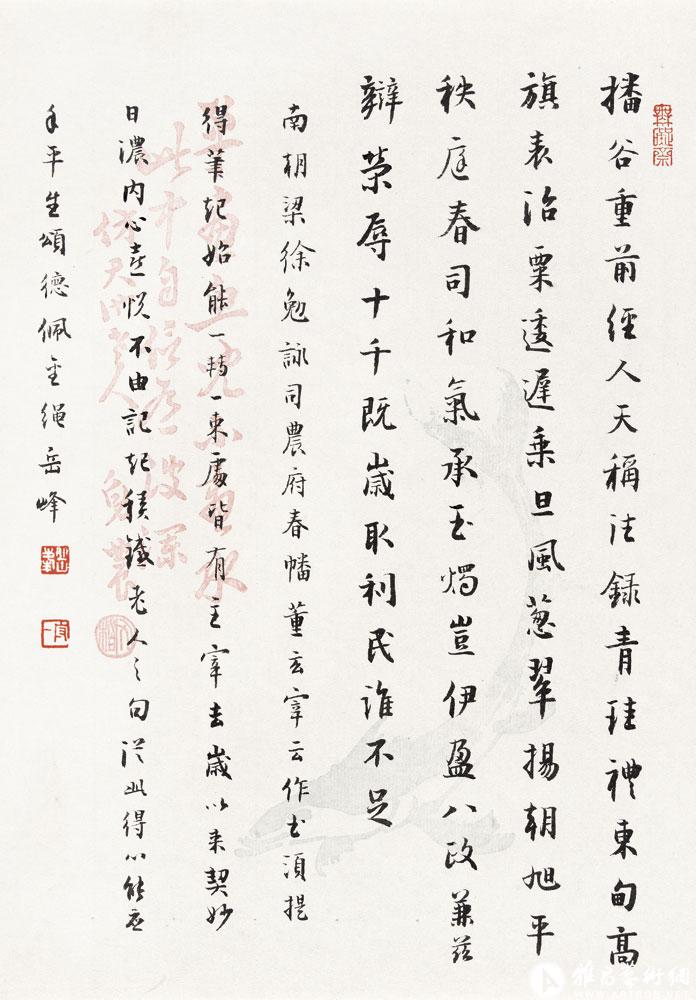 播谷重前經人天稱往録青珪禮東甸高
旗表治粟逶遲乘旦風葱翠揚朝旭平
秩庭春司和氣承玉燭豈伊盈八政兼茲
辯榮辱十千既歲取利民誰不足
南朝梁徐勉詠司農府春幡董玄宰云作書須提
得筆起始能一轉一束處皆有主宰去歲以來契妙
日濃内心喜悦不由記起積鐵老人之句從此得心能應
手平生頌德佩金繩岳峰
雅昌藝術網